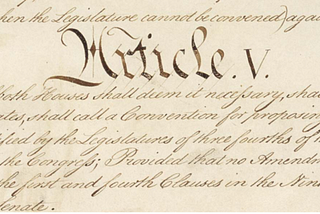 hen the Legislature cannot be convened) agai
Article. V.
both Houses shall deem it necessary, sha
tes, shall call a Convention for proposin
fied by the Legislatures of three fourths of
the Congress; Provided that no Amendm
the first and fourth Clauses in the Nin
Senate.